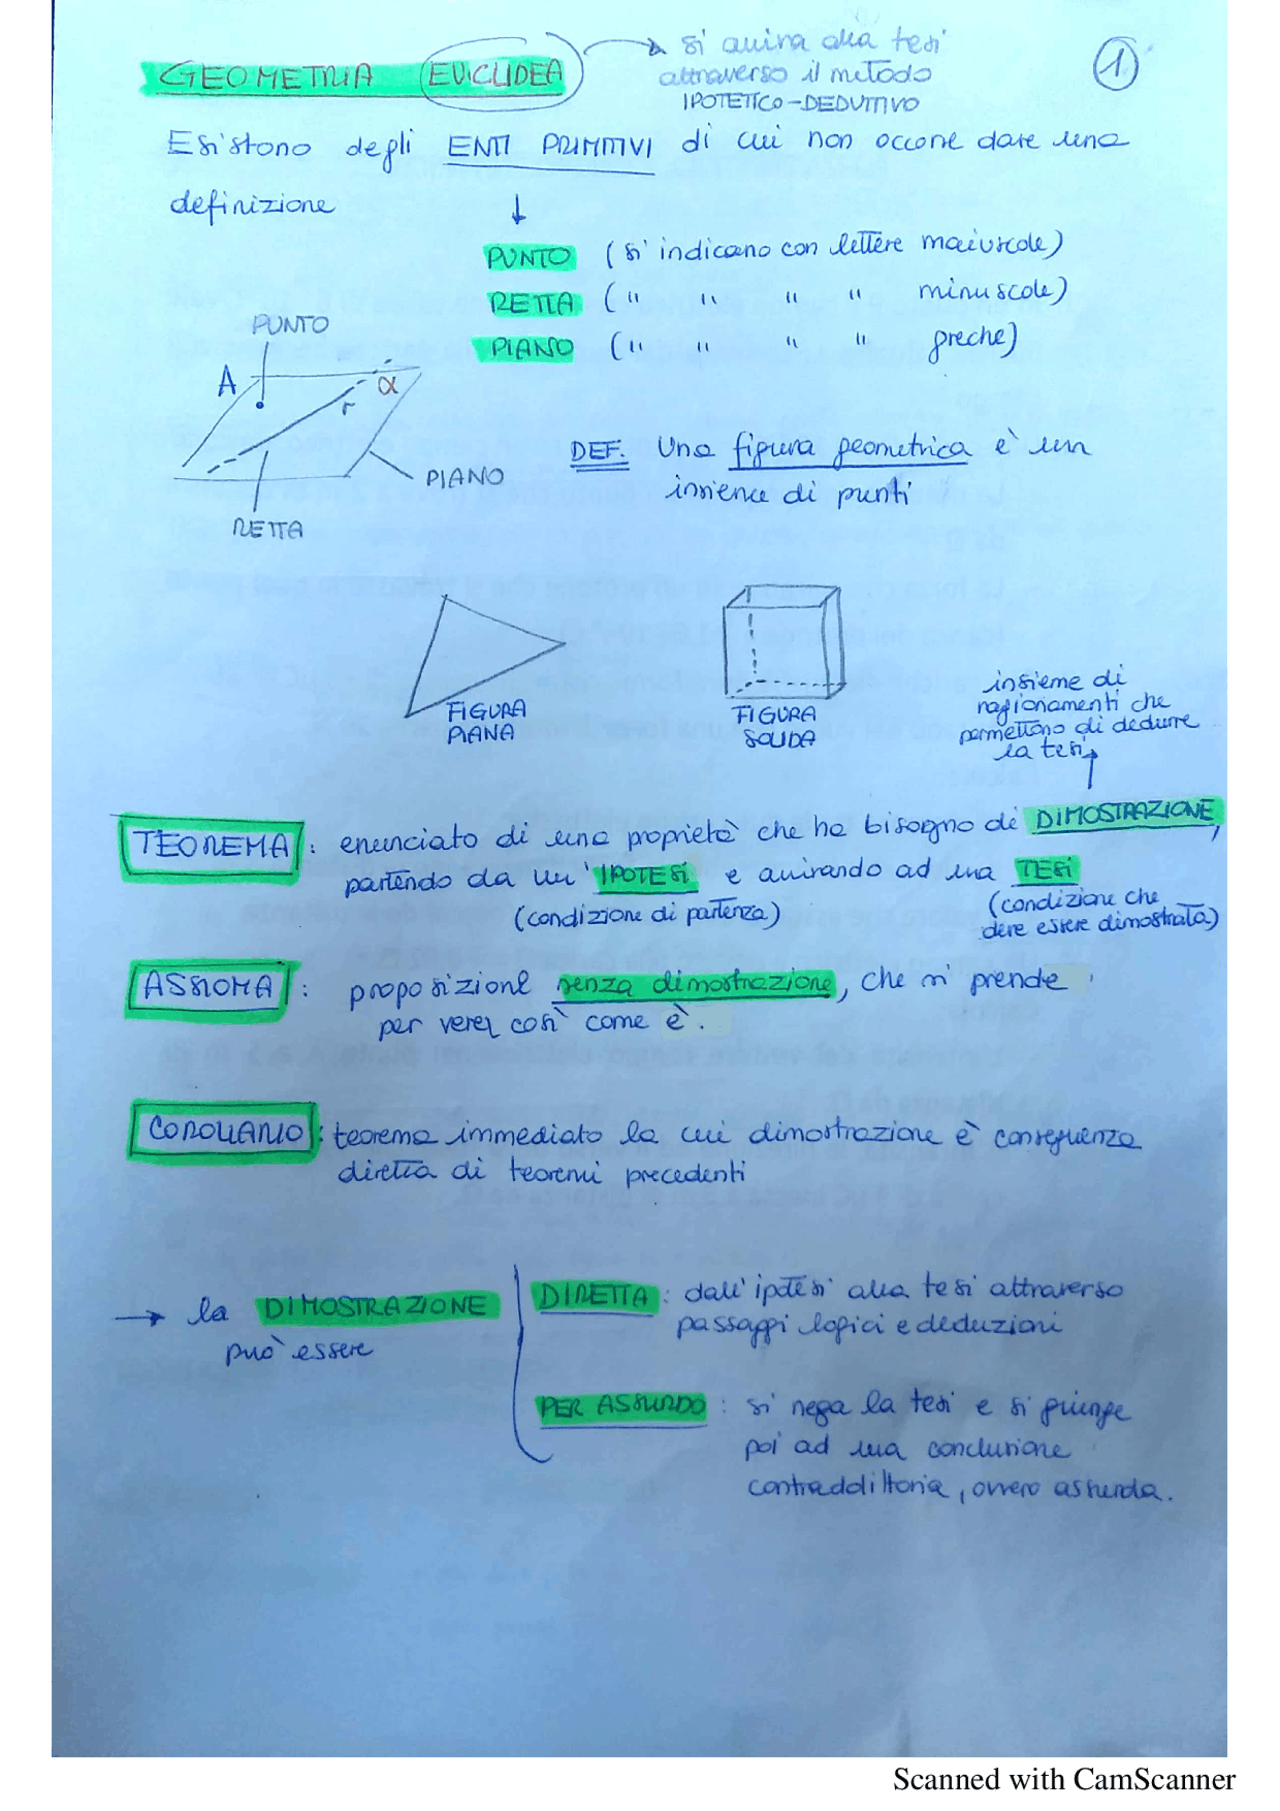 GEOMETRIA EUCLIDEA
si arriva alla tesi
attraverso il metodo
IPOTETICO-DEDUTTIVO
1
Esistono degli ENTI PRIMITIVI di cui non occorre dare una
definizione
↓
PUNTO (si indicano con lettere maiuscole)
RETTA (" " " " minuscole)
PIANO (" " " " greche)
PUNTO
A
α
r
PIANO
RETTA
DEF. Una figura geometrica è un
insieme di punti
FIGURA
PIANA
FIGURA
SOLIDA
insieme di
ragionamenti che
permettono di dedurre
la tesi
TEOREMA: enunciato di una proprietà che ha bisogno di DIMOSTRAZIONE,
partendo da un'IPOTESI e arrivando ad una TESI
(condizione di partenza)
(condizione che
deve essere dimostrata)
ASSIOMA: proposizione senza dimostrazione, che si prende
per vera così come è.
COROLLARIO: teorema immediato la cui dimostrazione è conseguenza
diretta di teoremi precedenti
→ la DIMOSTRAZIONE
può essere
DIRETTA: dall'ipotesi alla tesi attraverso
passaggi logici e deduzioni
PER ASSURDO: si nega la tesi e si giunge
poi ad una conclusione
contraddittoria, ovvero assurda.
Scanned with CamScanner